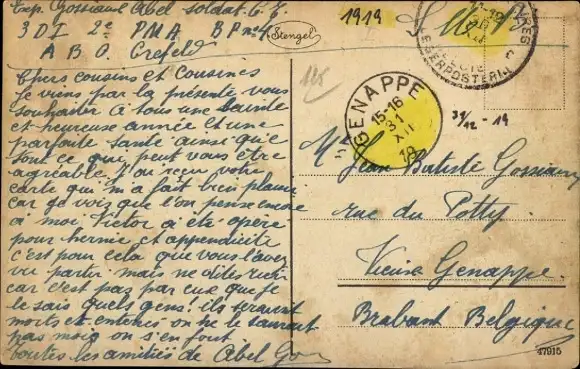 Exp. Gossiaux Abel soldat
3 D I 2e P M A B P no 4
A B O. Crefeld
Chers cousins et cousines
Je viens par la présente vous
souhaiter à tous une sainte
et heureuse année et une
parfaite santé ainsi que
tout ce que peut vous être
agréable. J'ai reçu votre
carte qui m'a fait bien plaisir
car je vois que l'on pense encore
à moi. Victor a été opéré
pour hernie et appendicite
c'est pour cela que vous l'avez
vu partir mais ne dites rien
car c'est pas par eux que je
le sais quels gens! ils seraient
morts et enterrés on ne le saurait
pas mais on s'en fout
toutes les amitiés de Abel Gos
1919
Stengel
S. M.
POSTERIJ
GENAPPE
15-16
31
XII
19
31/12 - 19
Mr Jean Batiste Gossiaux
rue du Potty
Vieux Genappe
Brabant Belgique
47915